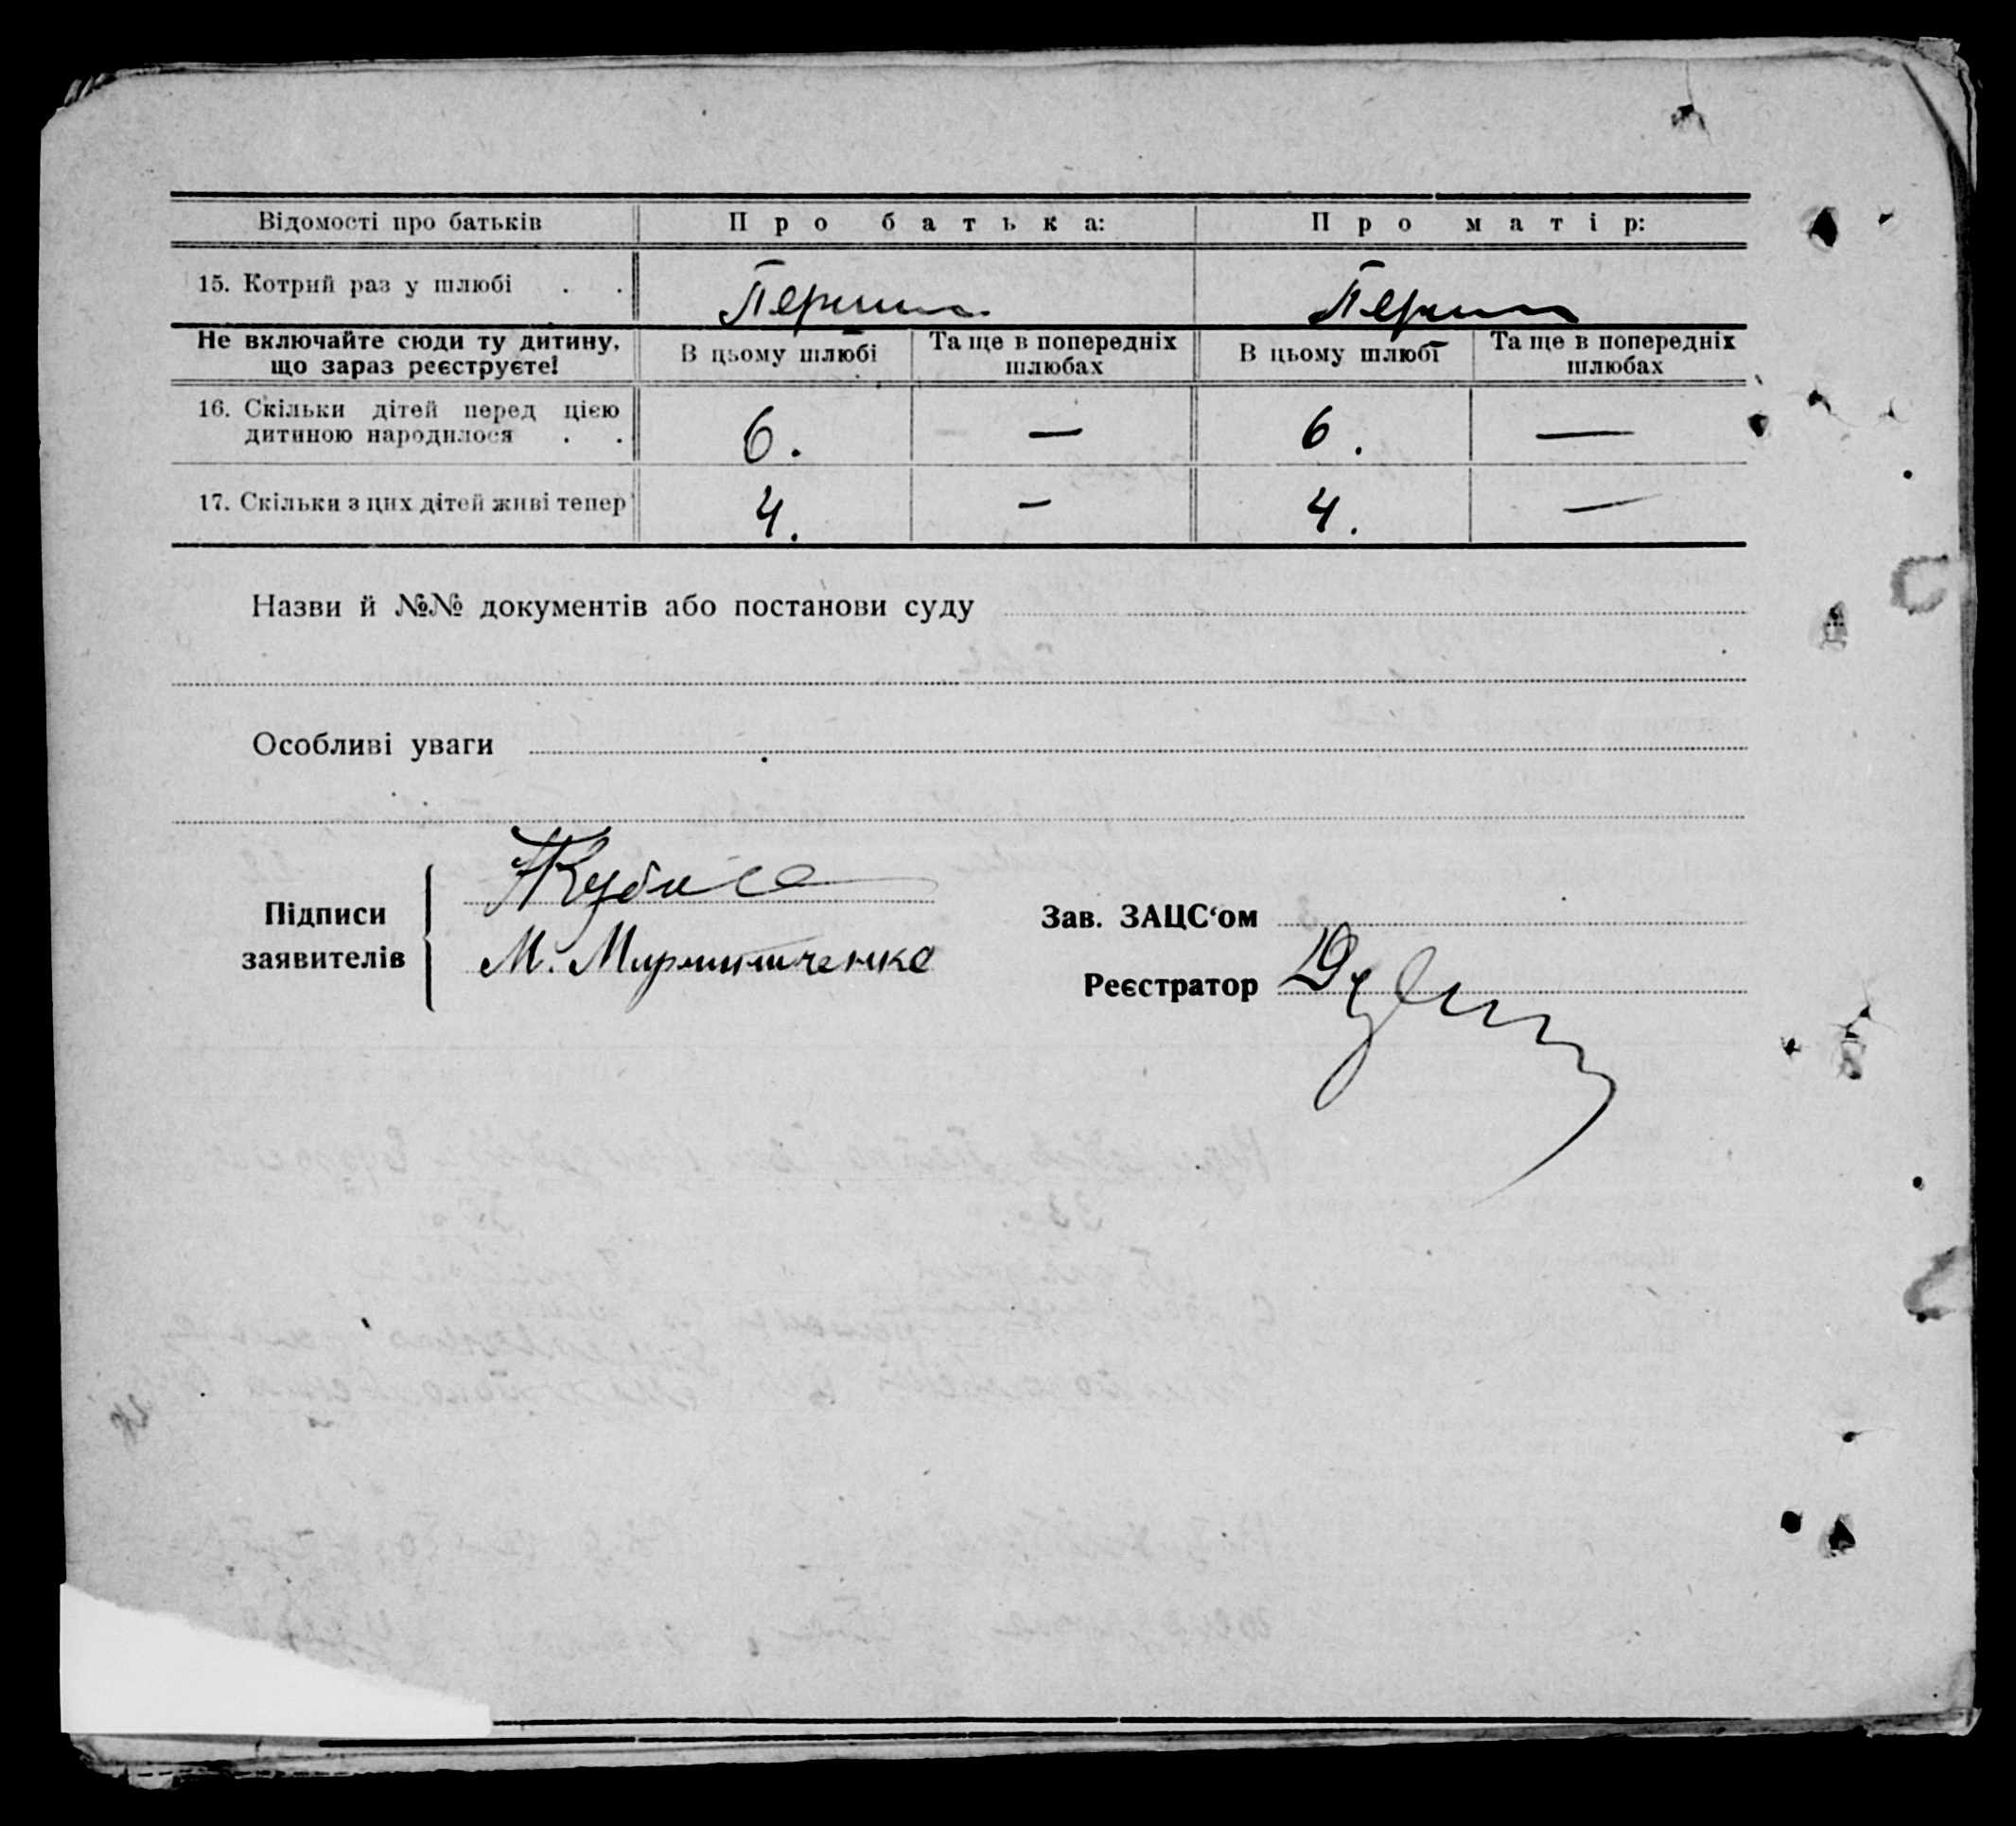 Відомості про батьків Про батька: Про матір:
15. Котрий раз у шлюбі . . Перший Перший
Не включайте сюди ту дитину, що зараз реєструєте! В цьому шлюбі Та ще в попередніх шлюбах В цьому шлюбі Та ще в попередніх шлюбах
16. Скільки дітей перед цією
дитиною народилося . . 6. — 6. —
17. Скільки з цих дітей живі тепер 4. — 4. —
Назви й №№ документів або постанови суду
Особливі уваги
Підписи
заявителів
М. Мирмитченко
Зав. ЗАЦС‘ом
Реєстратор